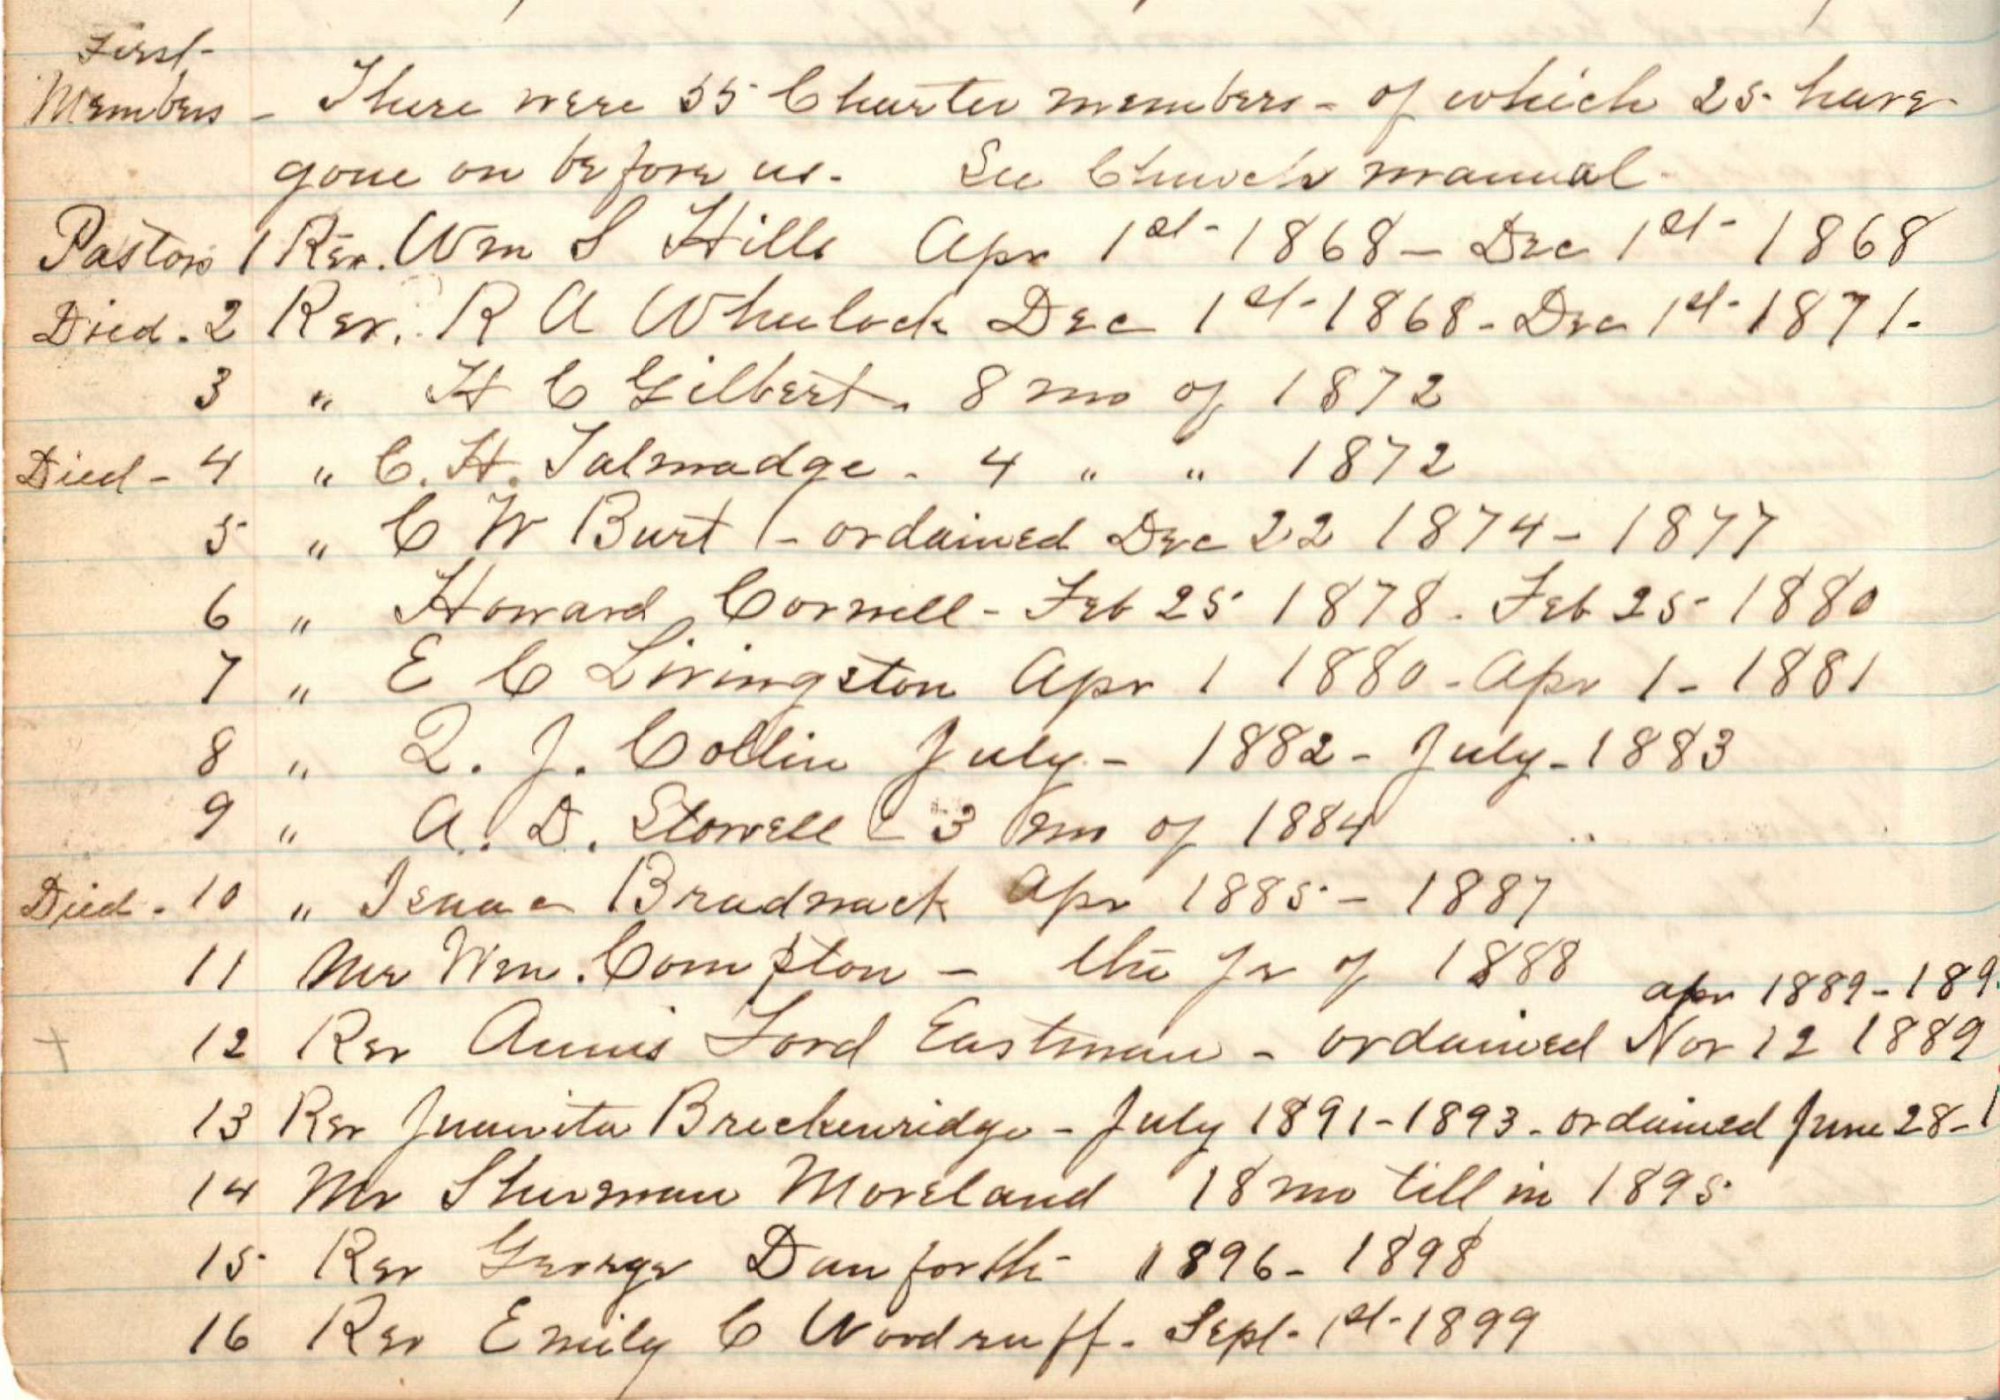 First
Members - There were 55 Charter members - of which 25 have
gone on before us. See Church manual.
Pastors 1 Rev. Wm S Hills Apr 1st 1868 - Dec 1st 1868
Died - 2 Rev. R A Wheelock Dec 1st 1868 - Dec 1st 1871.
3 " H C Gilbert. 8 mo of 1872
Died - 4 " C. H. Talmadge - 4 " " 1872
5 " C W Burt - ordained Dec 22 1874 - 1877
6 " Howard Cornell - Feb 25 1878 - Feb 25 1880
7 " E C Livingston Apr 1 1880 - Apr 1 - 1881
8 " Q. J. Collin July - 1882 - July - 1883
9 " A. D. Stowell - 3 mo of 1884
Died - 10 " Isaac Bradnack Apr 1885 - 1887
11 Mr Wm. Compston - the yr of 1888
apr 1889 - 189
+ 12 Rev Annis Ford Eastman - ordained Nov 12 1889
13 Rev Juanita Breckenridge - July 1891 - 1893 - ordained June 28 - 1
14 Mr Sherman Moreland 18 mo till in 1895
15 Rev George Danforth 1896 - 1898
16 Rev Emily C Woodruff - Sept. 1st - 1899